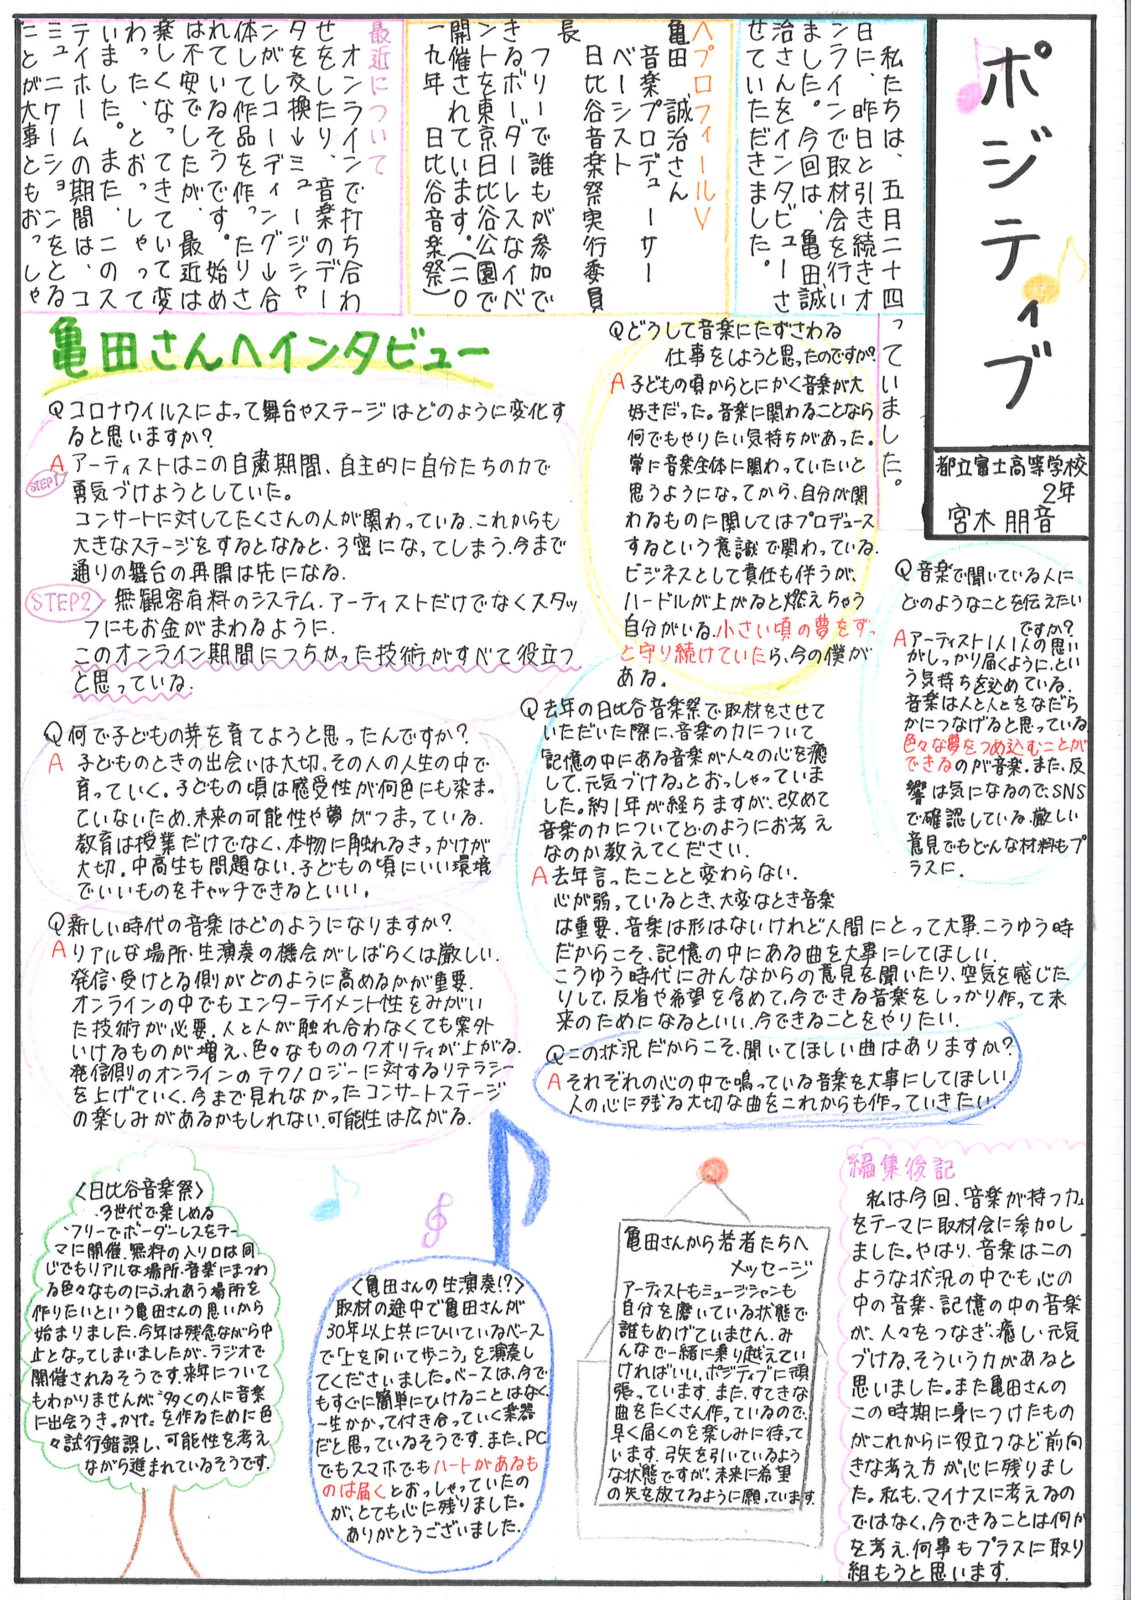 ポジティブ
都立富士高等学校
2年
宮木 朋音
私たちは、五月二十四
日に、昨日と引き続きオ
ンラインで取材会を行い
ました。今回は、亀田誠
治さんをインタビューさ
せていただきました。
＜プロフィール＞
亀田 誠治さん
音楽プロデューサー
ベーシスト
日比谷音楽祭実行委員
長
フリーで誰もが参加で
きるボーダーレスなイベ
ントを東京日比谷公園で
開催されています。(二〇
一九年 日比谷音楽祭)
最近について
オンラインで打ち合わ
せをしたり、音楽のデー
タを交換→ミュージシャ
ンがレコーディング→合
体して作品を作ったりさ
れているそうです。始め
は不安でしたが、最近は
楽しくなってきていて変
わった、とおっしゃって
いました。また、このス
テイホームの期間は、コ
ミュニケーションをとる
ことが大事ともおっしゃ
っていました。
亀田さんへインタビュー
Qどうして音楽にたずさわる
仕事をしようと思ったのですか?
A子どもの頃からとにかく音楽が大
好きだった。音楽に関わることなら
何でもやりたい気持ちがあった。
常に音楽全体に関わっていたいと
思うようになってから、自分が関
わるものに関してはプロデュース
するという意識で関わっている.
ビジネスとして責任も伴うが、
ハードルが上がると燃えちゃう
自分がいる.小さい頃の夢をず
っと守り続けていたら、今の僕が
ある。
Q音楽で聞いている人に
どのようなことを伝えたい
ですか?
Aアーティスト1人1人の思い
がしっかり届くように、とい
う気持ちを込めている.
音楽は人と人とをなだら
かにつなげると思っている.
色々な夢をつめ込むことが
できるのが音楽.また、反
響は気になるので、SNS
で確認している.厳しい
意見でもどんな材料もプ
ラスに.
Qコロナウイルスによって舞台やステージはどのように変化す
ると思いますか?
Aアーティストはこの自粛期間、自主的に自分たちの力で
STEP1
勇気づけようとしていた。
コンサートに対してたくさんの人が関わっている.これからも
大きなステージをするとなると、3密になってしまう.今まで
通りの舞台の再開は先になる.
STEP2 無観客有料のシステム.アーティストだけでなくスタッ
フにもお金がまわるように.
このオンライン期間につちかった技術がすべて役立つ
と思っている.
Q何で子どもの芽を育てようと思ったんですか?
A 子どものときの出会いは大切.その人の人生の中で
育っていく.子どもの頃は感受性が何色にも染まっ
ていないため、未来の可能性や夢がつまっている.
教育は授業だけでなく、本物に触れるきっかけが
大切。中高生も問題ない.子どもの頃にいい環境
でいいものをキャッチできるといい。
Q新しい時代の音楽はどのようになりますか?
Aリアルな場所、生演奏の機会がしばらくは厳しい.
発信・受けとる側がどのように高めるかが重要.
オンラインの中でもエンターテイメント性をみがい
た技術が必要.人と人が触れ合わなくても案外
いけるものが増え、色々なもののクオリティが上がる.
発信側のオンラインのテクノロジーに対するリテラシー
を上げていく.今まで見れなかったコンサートステージ
の楽しみがあるかもしれない.可能性は広がる.
Q去年の日比谷音楽祭で取材をさせて
いただいた際に、音楽の力について
「記憶の中にある音楽が人々の心を癒
して、元気づける」とおっしゃっていま
した。約1年が経ちますが、改めて
音楽の力についてどのようにお考え
なのか教えてください.
A去年言ったことと変わらない.
心が弱っているとき、大変なとき音楽
は重要.音楽は形はないけれど人間にとって大事.こうゆう時
だからこそ、記憶の中にある曲を大事にしてほしい.
こうゆう時代にみんなからの意見を聞いたり、空気を感じた
りして、反省や希望を含めて、今できる音楽をしっかり作って未
来のためになるといい.今できることをやりたい.
Qこの状況だからこそ、聞いてほしい曲はありますか?
Aそれぞれの心の中で鳴っている音楽を大事にしてほしい.
人の心に残る大切な曲をこれからも作っていきたい.
〈日比谷音楽祭〉
・3世代で楽しめる
・フリーでボーダーレスをテー
マに開催.無料の入り口は同
じでもリアルな場所、音楽にまつわ
る色々なものにふれあう場所を
作りたいという亀田さんの思いから
始まりました.今年は残念ながら中
止となってしまいましたが、ラジオで
開催されるそうです.来年について
もわかりませんが"多くの人に音楽
に出会うきっかけ"を作るために色
々試行錯誤し、可能性を考え
ながら進まれているそうです.
〈亀田さんの生演奏!?〉
取材の途中で亀田さんが
30年以上共にひいているベース
で「上を向いて歩こう」を演奏し
てくださいました。ベースは、今で
もすぐに簡単にひけることはなく、
一生かかって付き合っていく楽器
だと思っているそうです.また、PC
でもスマホでもハートがあるも
のは届くとおっしゃっていたの
が、とても心に残りました。
ありがとうございました.
亀田さんから若者たちへ
メッセージ
アーティストもミュージシャンも
自分を磨いている状態で
誰もめげていません.み
んなで一緒に乗り越えてい
ければいい.ポジティブに頑
張っています.また、すてきな
曲をたくさん作っているので、
早く届くのを楽しみに待って
います.弓矢を引いているよう
な状態ですが、未来に希望
の矢を放てるように願っています.
編集後記
私は今回、「音楽が持つ力」
をテーマに取材会に参加し
ました。やはり、音楽はこの
ような状況の中でも心の
中の音楽、記憶の中の音楽
が、人々をつなぎ、癒し、元気
づける、そういう力があると
思いました。また亀田さんの
この時期に身につけたもの
がこれからに役立つなど前向
きな考え方が心に残りまし
た。私も、マイナスに考えるの
ではなく、今できることは何か
を考え、何事もプラスに取り
組もうと思います.